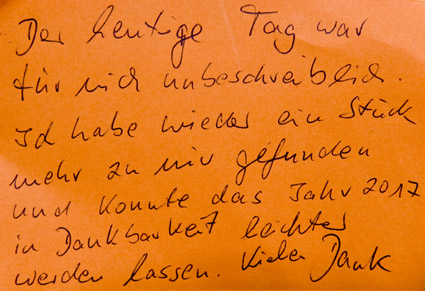 Der heutige Tag war
für mich unbeschreiblich.
Ich habe wieder ein Stück
mehr zu mir gefunden
und konnte das Jahr 2017
in Dankbarkeit leichter
werden lassen. Vielen Dank